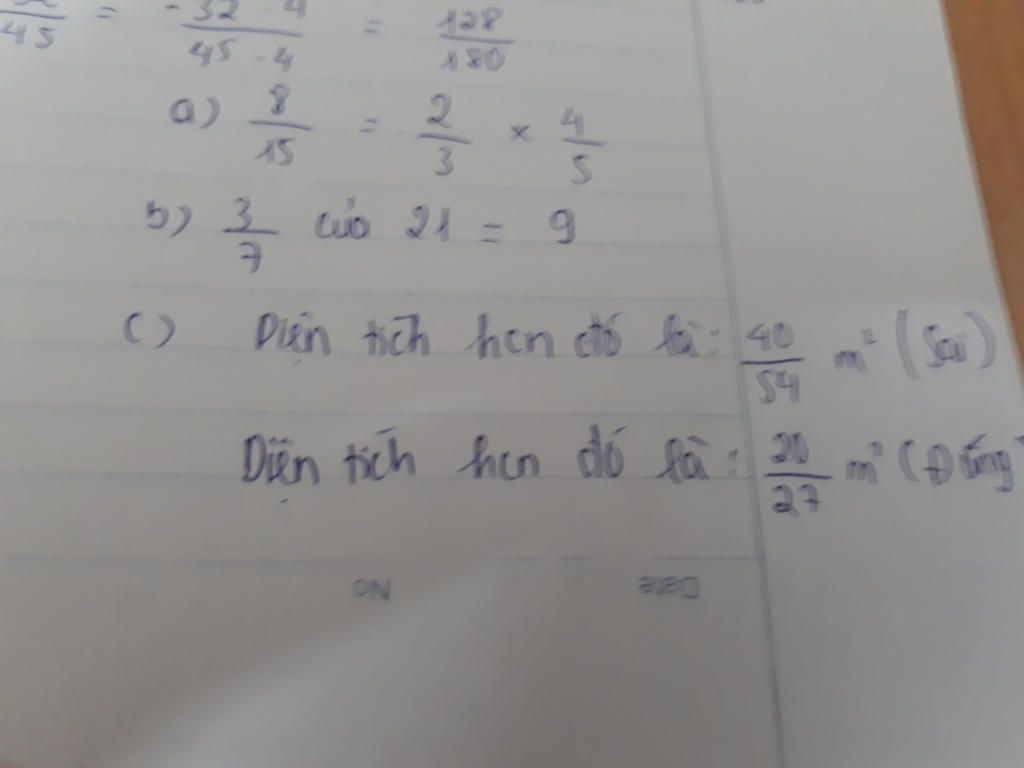 /45 = -32 . 4 / 45 . 4 = 128/180
a) 8/15 = 2/3 × 4/5
b) 3/7 của 21 = 9
c) Diện tích hcn đó là: 40/54 m² (Sai)
Diện tích hcn đó là: 20/27 m² (Đúng)
No Date